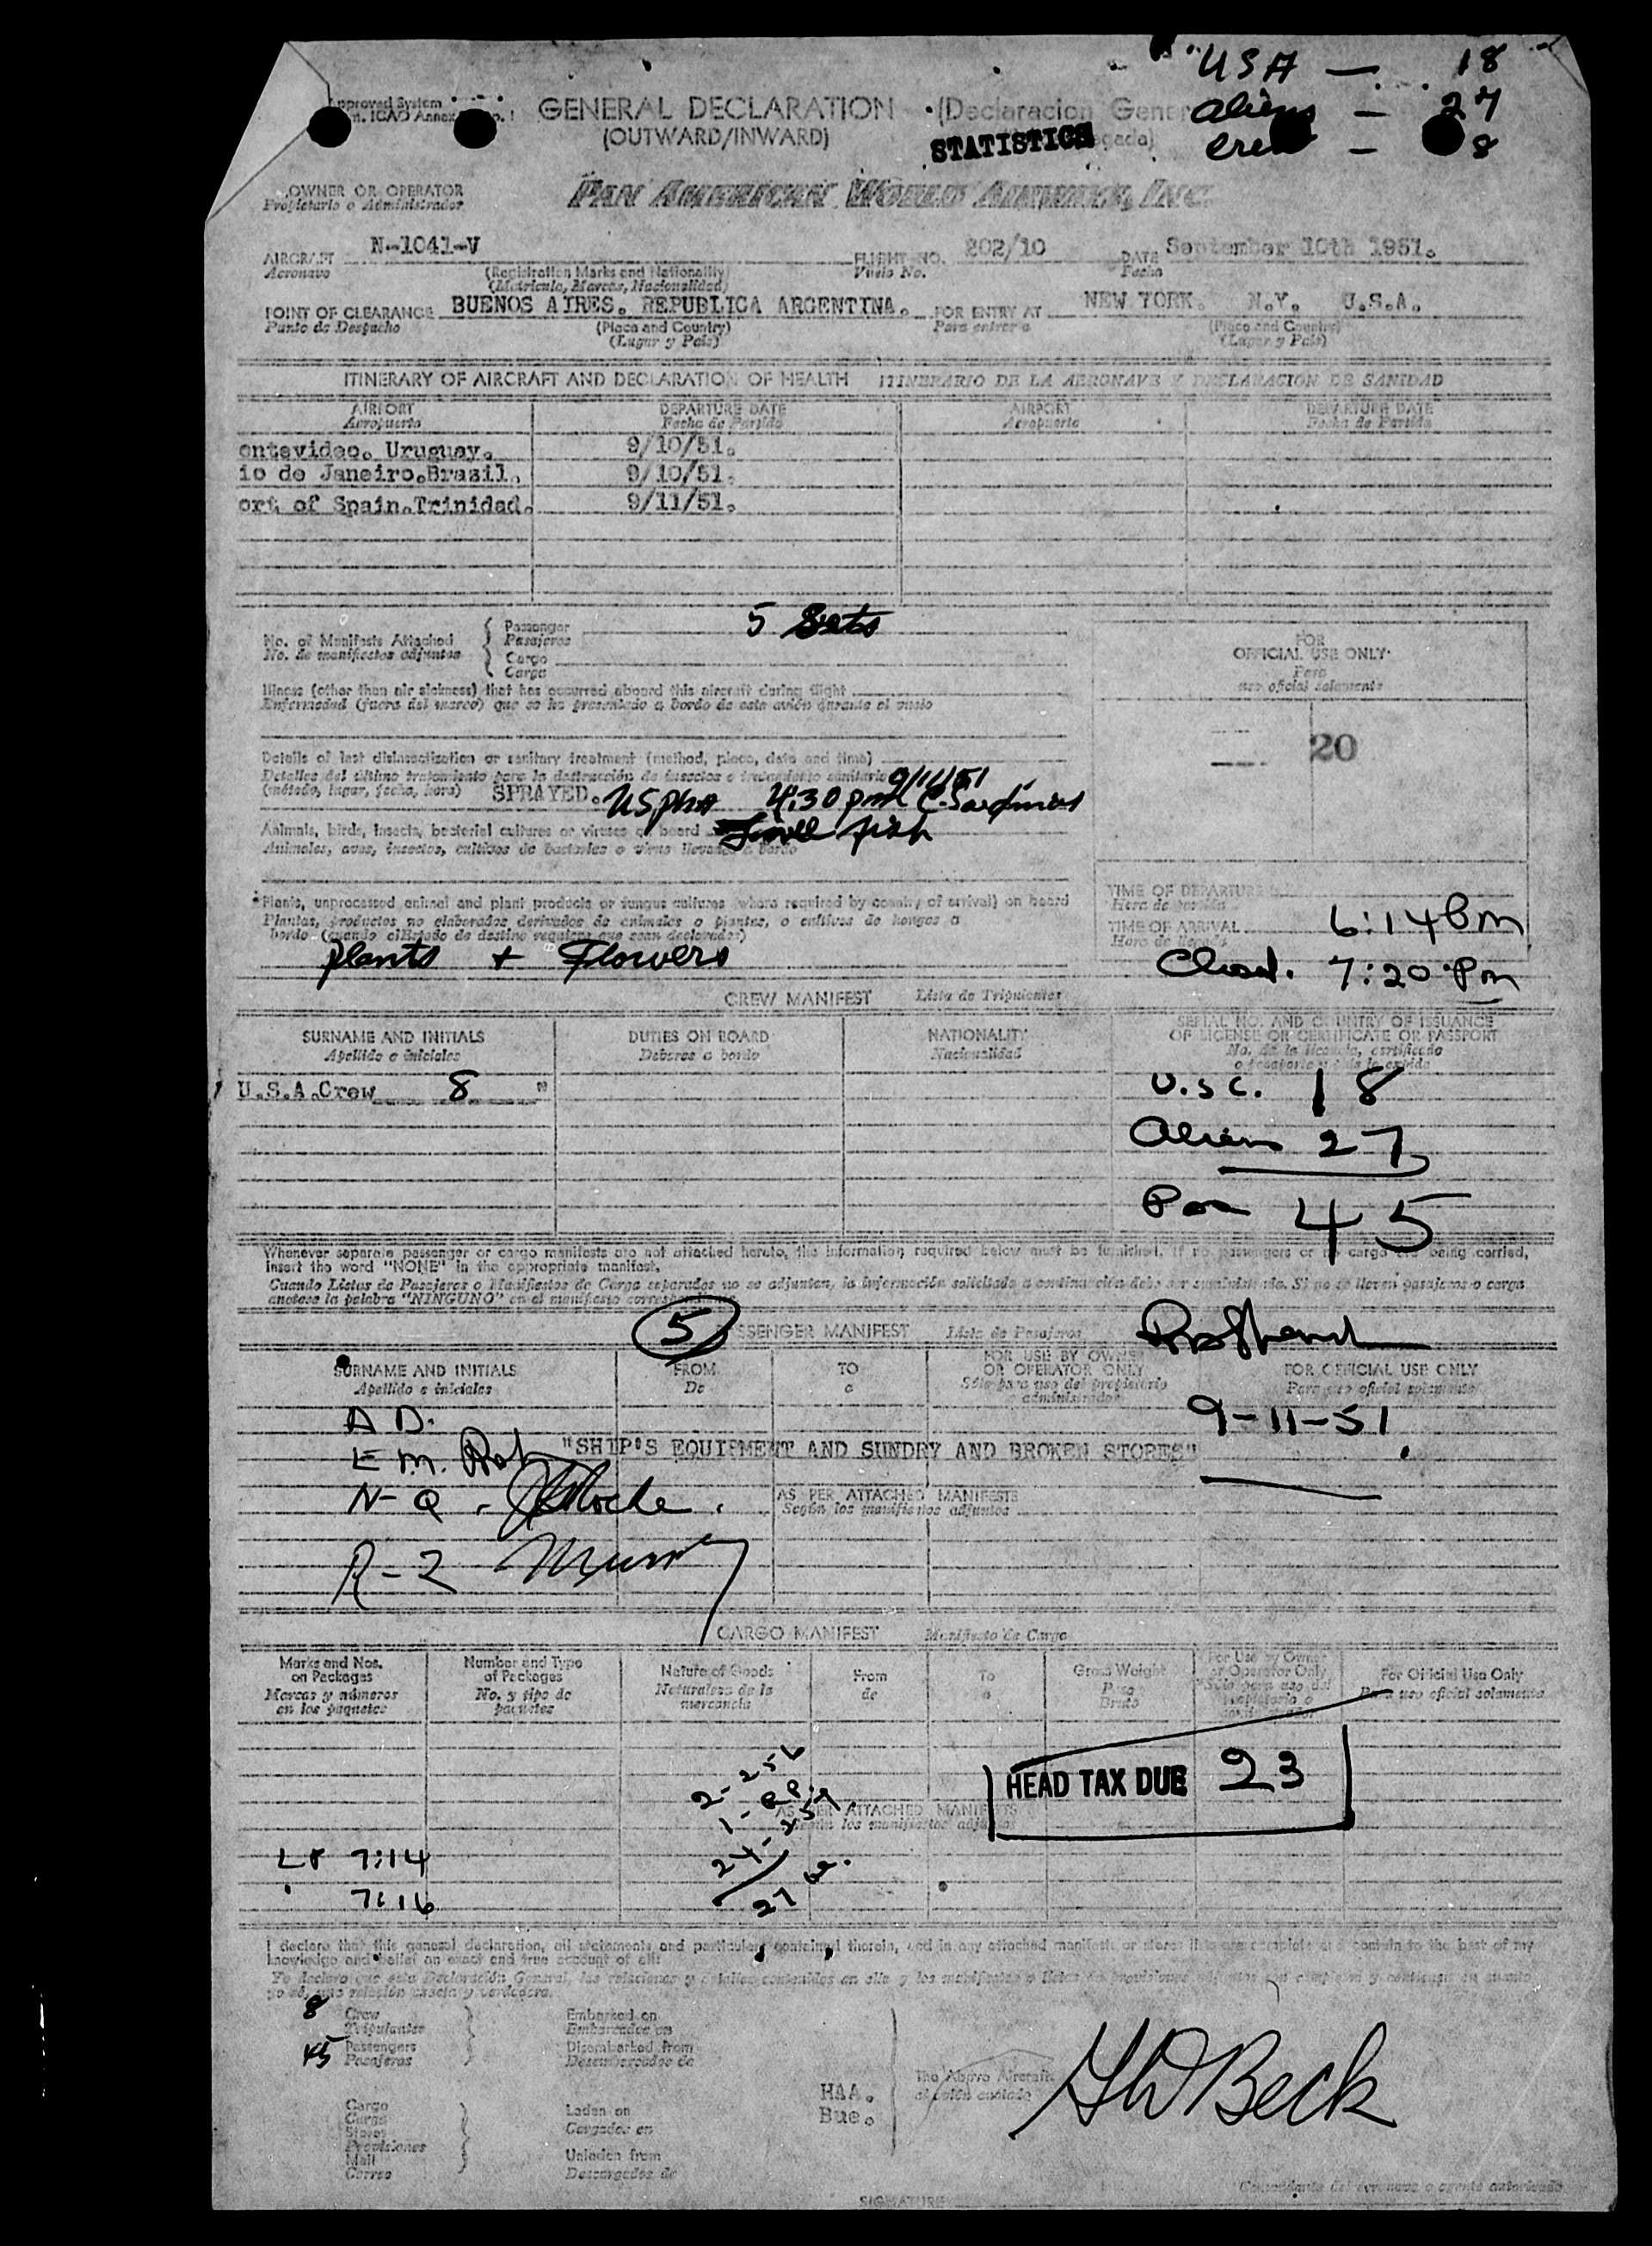 USA — 18
Aliens — 27
Crew — 8
GENERAL DECLARATION (Declaracion
(OUTWARD/INWARD)
STATISTICS
OWNER OR OPERATOR
Propietario o Administrador
PAN AMERICAN WORLD AIRWAYS, INC.
AIRCRAFT N-1041-V FLIGHT NO. 202/10 DATE September 10th 1951.
Aeronave (Registration Marks and Nationality) Vuelo No. Fecha
(Matricula, Marcas, Nacionalidad)
POINT OF CLEARANCE BUENOS AIRES. REPUBLICA ARGENTINA. FOR ENTRY AT NEW YORK. N.Y. U.S.A.
Punto de Despacho (Place and Country) Para entrar a (Place and Country)
(Lugar y País) (Lugar y País)
ITINERARY OF AIRCRAFT AND DECLARATION OF HEALTH ITINERARIO DE LA AERONAVE Y DECLARACION DE SANIDAD
AIRPORT DEPARTURE DATE AIRPORT DEPARTURE DATE
Aeropuerto Fecha de Partida Aeropuerto Fecha de Partida
ontevideo. Uruguay. 9/10/51.
io de Janeiro.Brasil. 9/10/51.
ort of Spain.Trinidad. 9/11/51.
No. of Manifests Attached Passenger 5 Sets
No. de manifiestos adjuntos Pasajeros
Cargo
Carga
FOR
OFFICIAL USE ONLY
Para
uso oficial solamente
20
Illness (other than air sickness) that has occurred aboard this aircraft during flight
Enfermedad (fuera del mareo) que se ha presentado a bordo de este avión durante el vuelo
Details of last disinsectization or sanitary treatment (method, place, date and time)
Detalles del último tratamiento para la destrucción de insectos o tratamiento sanitario
(método, lugar, fecha, hora) SPRAYED. USPHS 4:30 pm 9/11/51
Animals, birds, insects, bacterial cultures or viruses on board fish
Animales, aves, insectos, cultivos de bacterias o virus llevados a bordo
*Plants, unprocessed animal and plant products or fungus cultures (where required by country of arrival) on board
Plantas, productos no elaborados derivados de animales o plantas, o cultivos de hongos a
bordo (cuando el Estado de destino requiera que sean declarados)
Plants + Flowers
TIME OF DEPARTURE
Hora de partida
TIME OF ARRIVAL 6:14 Pm
Hora de llegada
Closed. 7:20 Pm
CREW MANIFEST Lista de Tripulantes
SURNAME AND INITIALS DUTIES ON BOARD NATIONALITY SERIAL NO. AND COUNTRY OF ISSUANCE
Apellido e iniciales Deberes a bordo Nacionalidad OF LICENSE OR CERTIFICATE OR PASSPORT
No. de la licencia, certificado
U.S.A.Crew 8 "
U.S.C. 18
Aliens 27
Pas 45
Whenever separate passenger or cargo manifests are not attached hereto, the information required below must be furnished. If no passengers or no cargo are being carried,
insert the word "NONE" in the appropriate manifest.
Cuando Listas de Pasajeros o Manifiestos de Carga separados no se adjunten, la información solicitada a continuación debe ser suministrada. Si no se llevan pasajeros o carga
anotese la palabra "NINGUNO" en el manifiesto correspondiente
5 SSENGER MANIFEST Lista de Pasajeros
SURNAME AND INITIALS FROM TO FOR USE BY OWNER OR OPERATOR ONLY FOR OFFICIAL USE ONLY
Apellido e iniciales De a Sólo para uso del propietario administrador Para uso oficial solamente
A D.
9-11-51.
E M.
"SHIP'S EQUIPMENT AND SUNDRY AND BROKEN STORES"
N-Q
AS PER ATTACHED MANIFESTS
Según los manifiestos adjuntos
R-Z Murray
CARGO MANIFEST Manifiesto de Carga
Marks and Nos. on Packages Number and Type of Packages Nature of Goods From To Gross Weight For Use by Owner or Operator Only For Official Use Only
Marcas y números en los paquetes No. y tipo de paquetes Naturaleza de la mercancía de a Peso Bruto Para uso oficial solamente
HEAD TAX DUE 23
2-256
24-257
27
AS PER ATTACHED MANIFESTS
7:14
7:16
I declare that this general declaration, all statements and particulars contained therein, and in any attached manifests or stores lists are complete and contain to the best of my
knowledge and belief an exact and true account of all:
8 Crew Embarked on
Tripulantes Embarcados en
45 Passengers Disembarked from
Pasajeros Desembarcados de
HAA.
Bue.
The Above Aircraft
Cargo
Carga Laden on
Stores Cargados en
Provisiones
Mail Unladen from
Correo Descargados de
H W Beck
SIGNATURE
Comandante del aeronave o agente autorizado